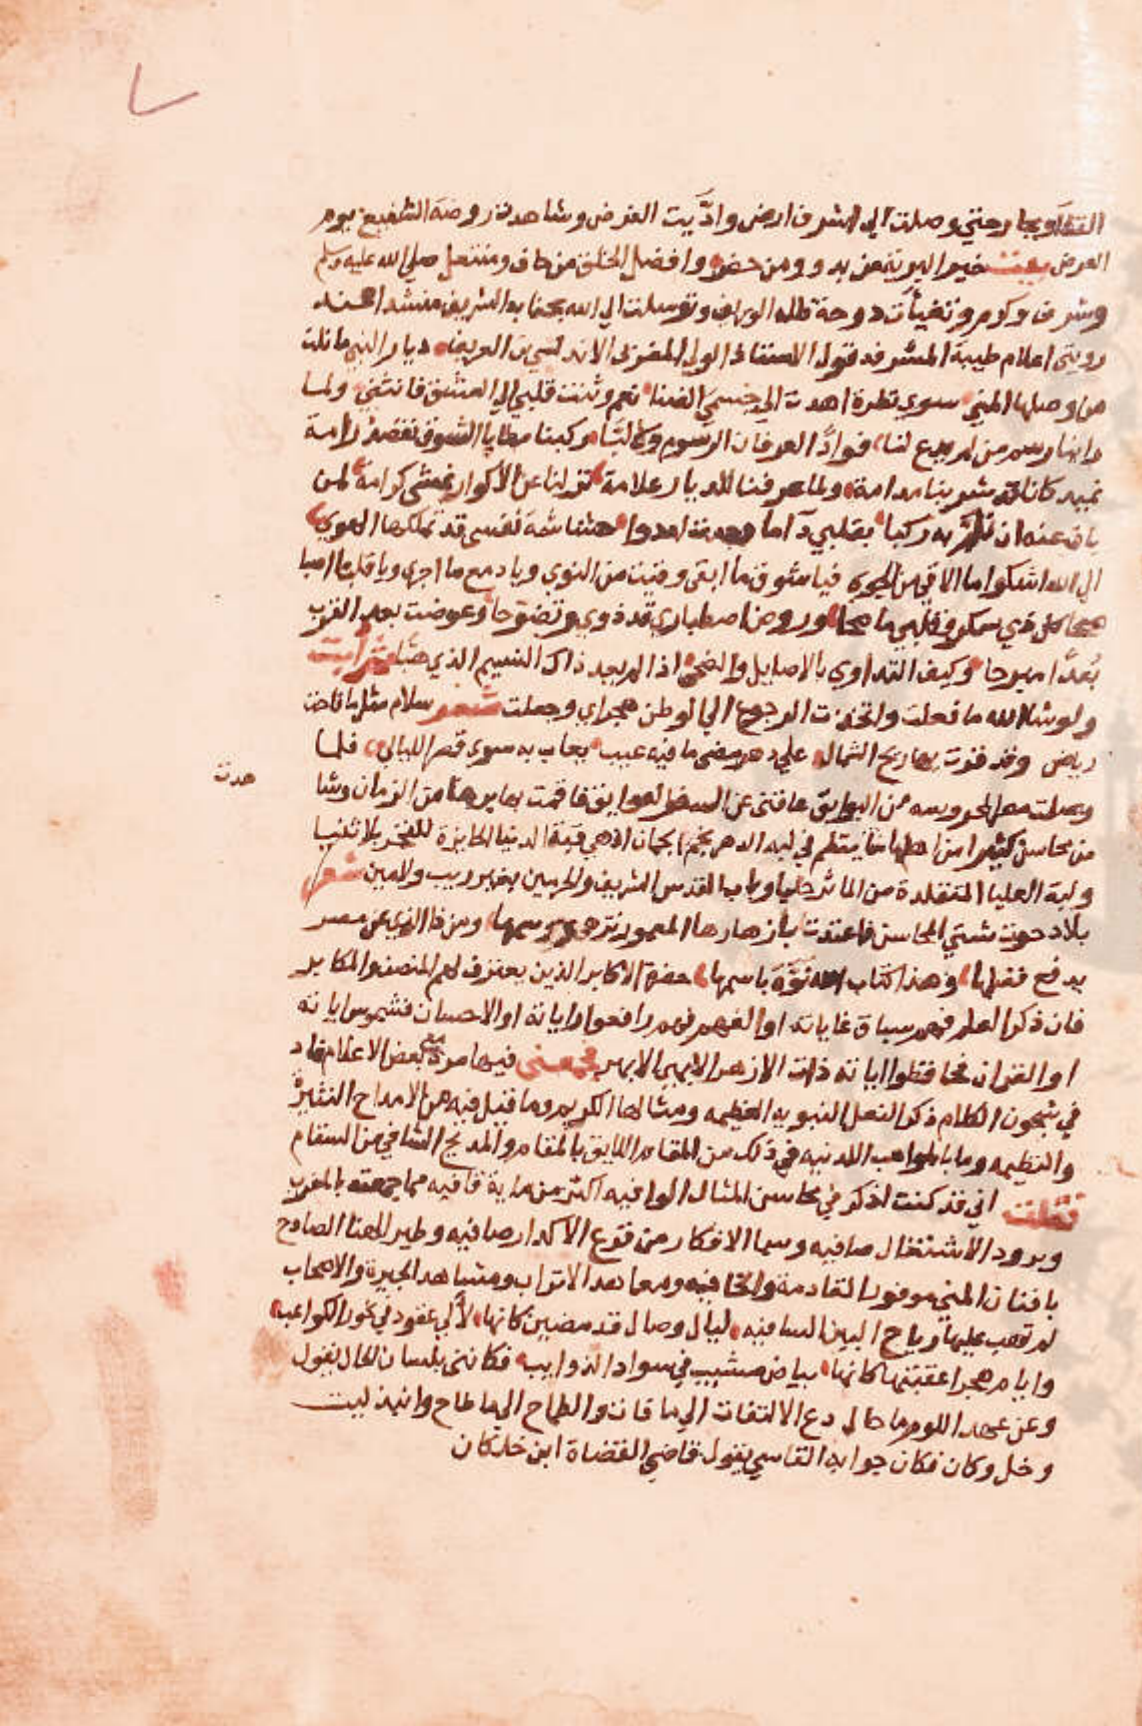 وصلت الى اشرف ارض واديت الفرض وشاهدت روضة الشفيع يوم
العرض خير البرية من بدو ومن حضر وافضل الخلق من حاف ومنتعل صلى الله عليه وسلم
وشرف وكرم وتفيأت دوحة ظله الوريف وتوسلت الى الله بجنابه الشريف منشدا عند
رويتى اعلام طيبة المشرفة قول الاستاذ الولى المغربى الاندلسى ديار النبى ما نلت
من وصلها المنى سوى نظرة اهدت الى جسمى الفنا نعم وثنت قلبى الى العشق فانثنى ولما
راينا رسم من لم يدع لنا فوادا لعرفان الرسوم ولا لبا ركبنا مطايا الشوق نقصد رامة
نميد كانا قد شربنا مدامة ولما عرفنا للديار علامة نزلنا عن الاكوار نمشى كرامة لمن
بان عنه ان نلم به ركبا بقلبى
الى الله اشكوا ما الاقى من الجوى فيا شوق ما ابقى ويا من النوى ويا دمع ما اجرى ويا قلب ما اصبا
صحا كل ذى سكر وقلبى ما صحا وروض اصطبارى قد ذوى وتضوحا وعوضت بعد القرب
بعدا مبرحا وكيف التداوى بالاصايل والضحى اذا لم يعد ذاك النسيم الذى هبا
ولو شا الله ما فعلت واتخذت الرجوع الى الوطن هجراى وجعلت شعر سلام مثل ما فاحت
رياض وقد بها ريح الشمال على دهر مضى ما فيه عيب يعاب به سوى قصر الليالى فلما
وصلت مصر المحروسه من البوايق عاقتنى عن السفر العوايق فاقمت بها برهة من الزمان وشا
هدت
من محاسن كثيرا من
ولية العليا المتقلدة من الماثر حليا وباب القدس الشريف والحرمين بغير ريب ولامين شعر
بلاد حوت شتى المحاسن فاغتدت بازهارها ومن ذا الذى عن مصر
يدفع فضلها وهذا كتاب الله نوه باسمها حضرة الاكابر الذين يعترف لهم المنصف والمكابر
فان ذكر العلم فهم سباق غاياته او الفهم فهم رافعوا راياته او الاحسان فشموس اياته
او القران فحافظوا اياته ذات الازهر الابهى الابهر فجمعنى فيها مرة مع بعض الاعلام
فى شجون الكلام ذكر النعل النبويه العظيمه ومثالها الكريم وما قيل فيه من الامداح النثيرة
والنظيمه وما بالمواهب اللدنيه فى ذلك من المقام اللايق بالمقام والمديح الشافى من السقام
فقلت انى قد كنت اذكر فى محاسن المثال الوافيه اكثر من ماية قافيه مما جمعته بالمغرب
وبرود الاشتغال صافيه وسما الافكار من قزع الاكدار صافيه وطير الهنا الصادح
بافنان المنى موفور القادمة والخافيه ومعاهد الاتراب ومشاهد الجيرة والاصحاب
لم تعب عليها رياح البين السافيه ليال وصال قد مضين كانها لآلى عقود فى نحور الكواعب
وايام هجر اعقبتها كانها بياض مشيب فى سواد الذوايب فكاننى بلسان الحال يقول
وعن عهد اللوم ما حال دع الالتفات الى ما فات والطماح الى ما طاح وانبذ ليت
وخل وكان فكان جوابه القاسى يقول قاضى القضاة ابن خلكان